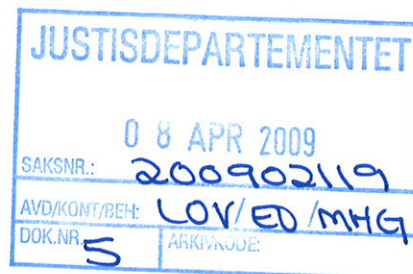 JUSTISDEPARTEMENTET
08 APR 2009
SAKSNR.: 200902119
AVD/KONT/BEH: LOV/ED/MHG
DOK.NR. 5 ARKIVKODE: